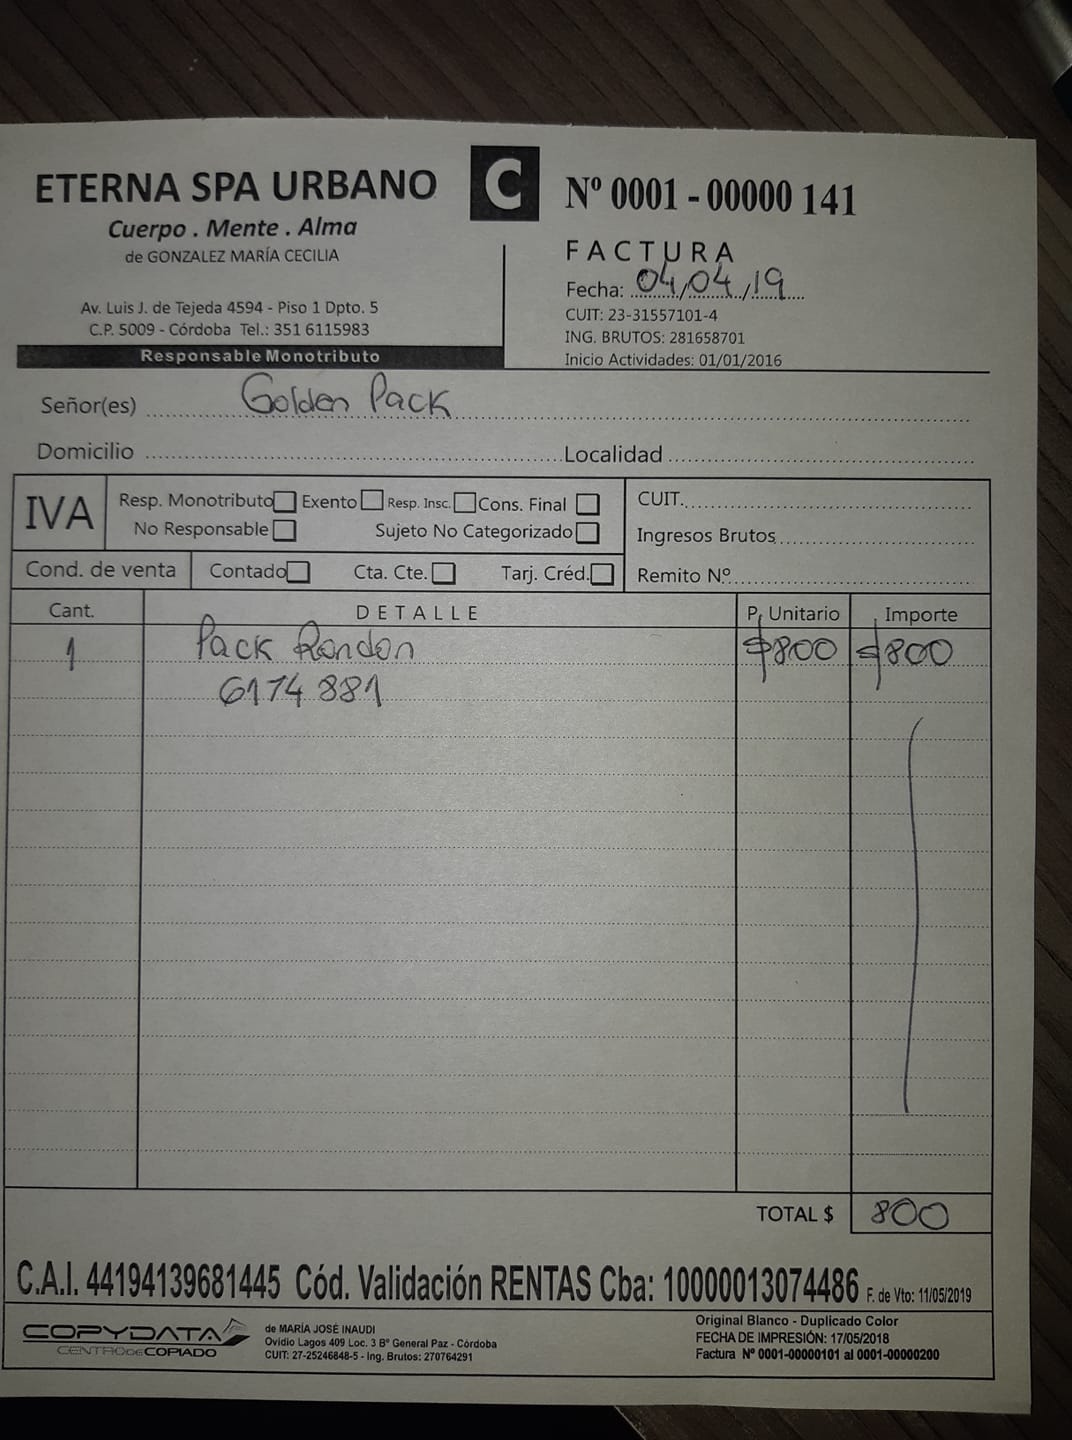 ETERNA SPA URBANO
Cuerpo . Mente . Alma
de GONZALEZ MARÍA CECILIA
Av. Luis J. de Tejeda 4594 - Piso 1 Dpto. 5
C.P. 5009 - Córdoba Tel.: 351 6115983
Responsable Monotributo
C
Nº 0001 - 00000 141
FACTURA
Fecha: 04/04/19
CUIT: 23-31557101-4
ING. BRUTOS: 281658701
Inicio Actividades: 01/01/2016
Señor(es) Golden Pack
Domicilio Localidad
IVA
Resp. Monotributo Exento Resp. Insc. Cons. Final
No Responsable Sujeto No Categorizado
CUIT.
Ingresos Brutos
Cond. de venta Contado Cta. Cte. Tarj. Créd. Remito Nº
Cant. DETALLE P. Unitario Importe
1 Pack Random $800 $800
6174 881
TOTAL $ 800
C.A.I. 44194139681445 Cód. Validación RENTAS Cba: 10000013074486 F. de Vto: 11/05/2019
COPYDATA
CENTRO DE COPIADO
de MARÍA JOSÉ INAUDI
Ovidio Lagos 409 Loc. 3 Bº General Paz - Córdoba
CUIT: 27-25246848-5 - Ing. Brutos: 270764291
Original Blanco - Duplicado Color
FECHA DE IMPRESIÓN: 17/05/2018
Factura Nº 0001-00000101 al 0001-00000200